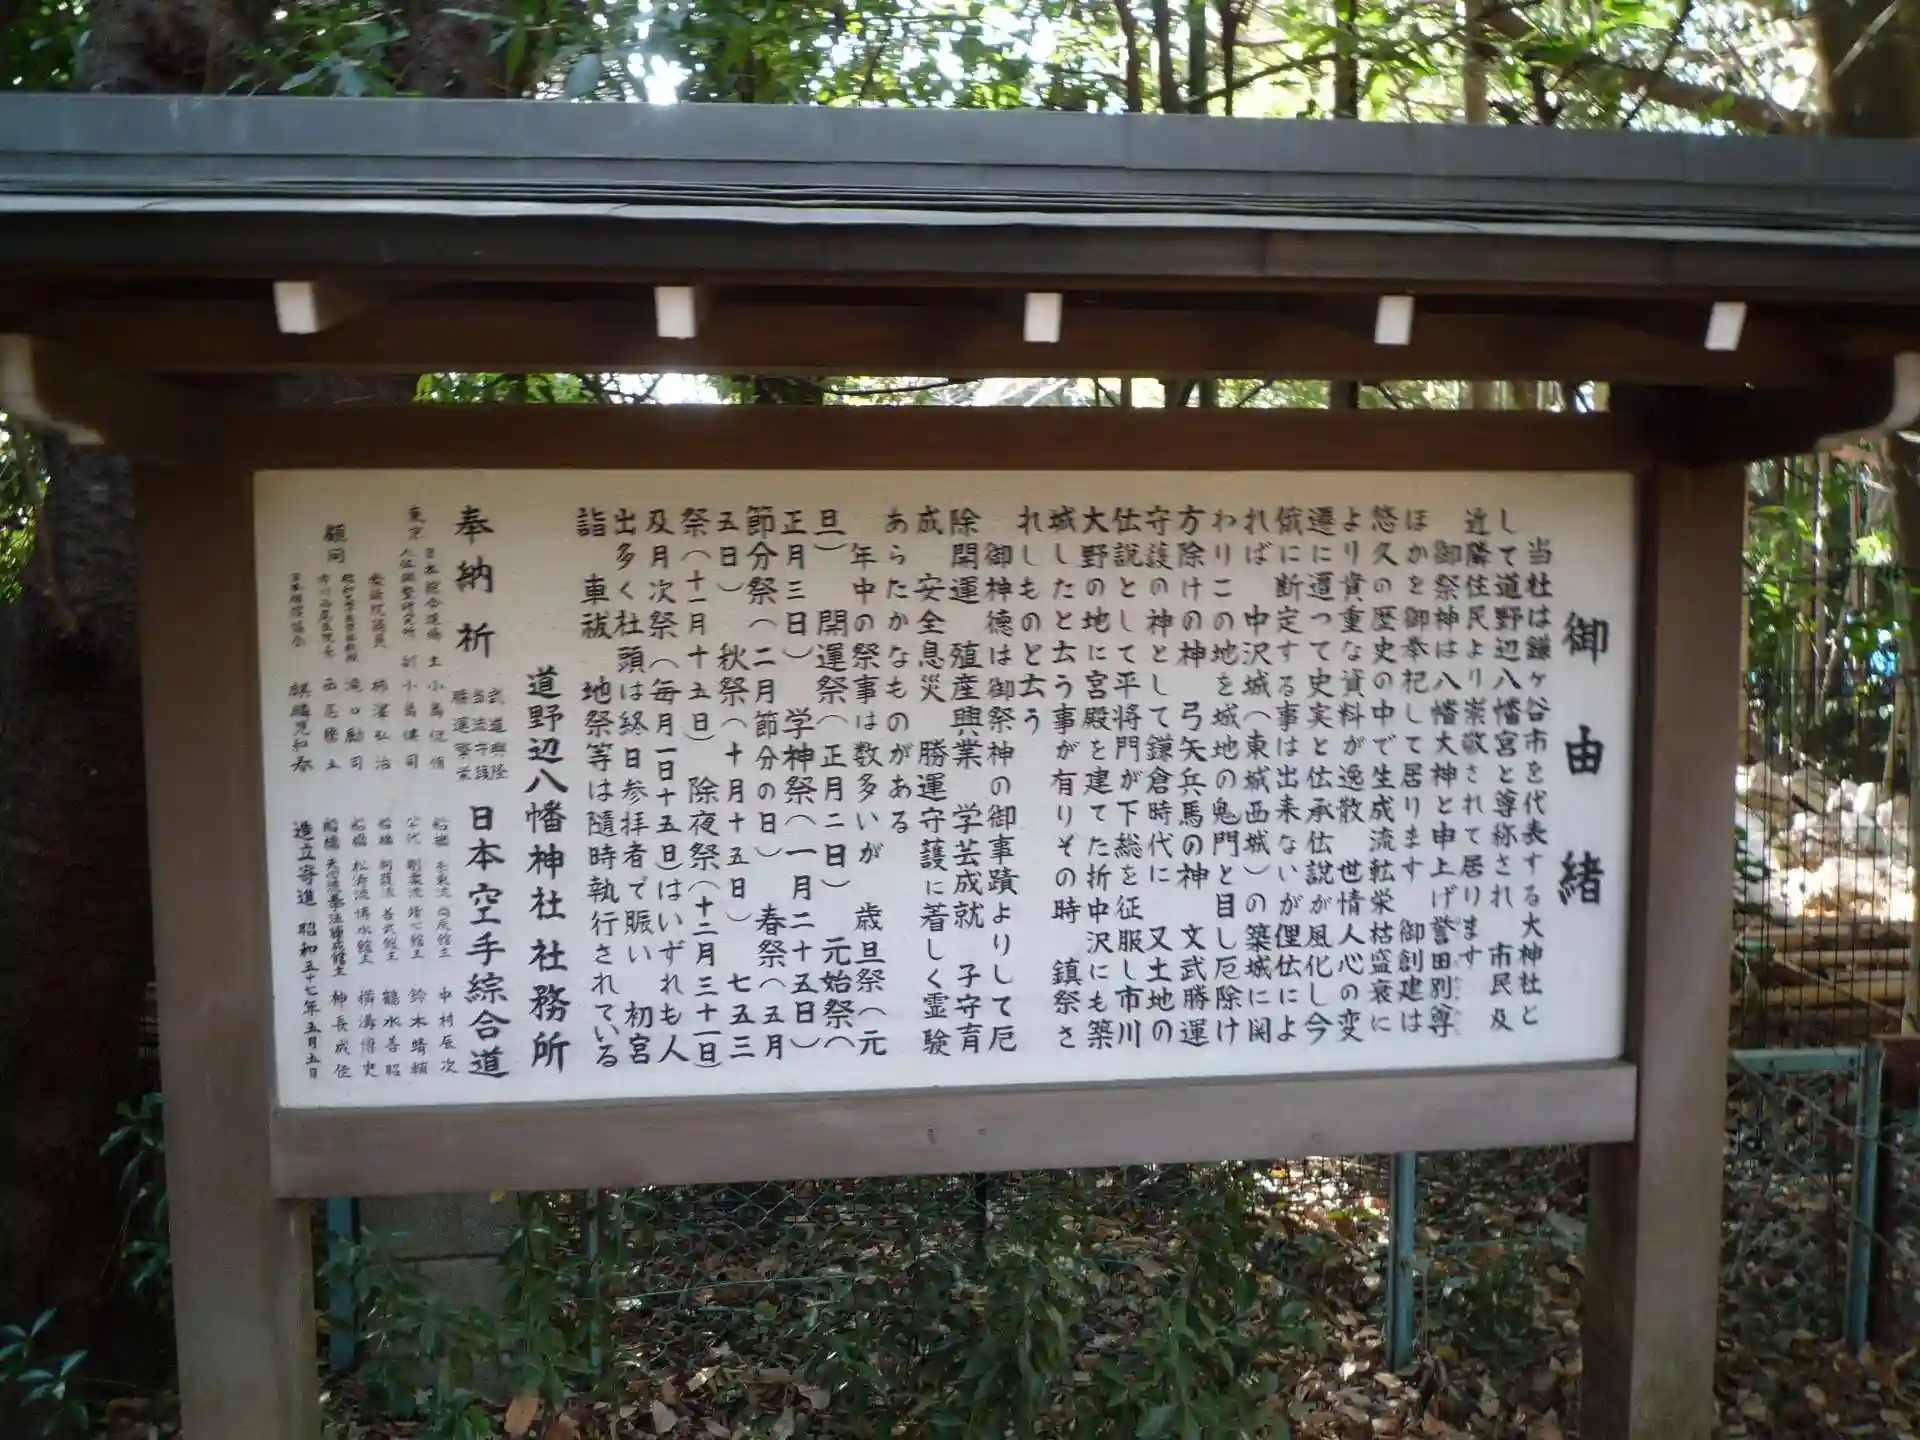 御由緒
当社は鎌ヶ谷市を代表する大神社と
して道野辺八幡宮と尊称され 市民及
近隣住民より崇敬されて居ります
御祭神は八幡大神と申上げ誉田別尊
ほかを御奉祀して居ります 御創建は
悠久の歴史の中で生成流転栄枯盛衰に
より貴重な資料が逸散 世情人心の変
遷に遭って史実と伝承伝説が風化し今
俄に断定する事は出来ないが俚伝によ
れば 中沢城(東城西城)の築城に関
わりこの地を城地の鬼門と目し厄除け
方除けの神 弓矢兵馬の神 文武勝運
守護の神として鎌倉時代に 又土地の
伝説として平将門が下総を征服し市川
大野の地に宮殿を建てた折中沢にも築
城したと云う事が有りその時 鎮祭さ
れしものと云う
御神徳は御祭神の御事蹟よりして厄
除開運 殖産興業 学芸成就 子守育
成 安全息災 勝運守護に着しく霊験
あらたかなものがある
年中の祭事は数多いが 歳旦祭(元
旦) 開運祭(正月二日) 元始祭(
正月三日) 学神祭(一月二十五日)
節分祭(二月節分の日) 春祭(五月
五日) 秋祭(十月十五日) 七五三
祭(十一月十五日) 除夜祭(十二月三十一日)
及月次祭(毎月一日十五日)はいずれも人
出多く社頭は終日参拝者で賑い 初宮
詣 車祓 地祭等は随時執行されている
道野辺八幡神社社務所
奉納 祈 武道興隆 当流守護 勝運繁栄 日本空手綜合道
東京 日本綜合道場 主 小島 船橋 中村辰次
小島 司 剛柔流 館主 鈴木晴頼
衆議院議員 弘治 船橋 館主 鶴水善昭
顧問 昭和大学 教授 滝口勵司 船橋 松濤流博水館主 横溝博史
市川 西尾 船橋 館主 神長成佳
日本相撲協会 麒麟児和春 造立寄進 昭和五十七年五月五日